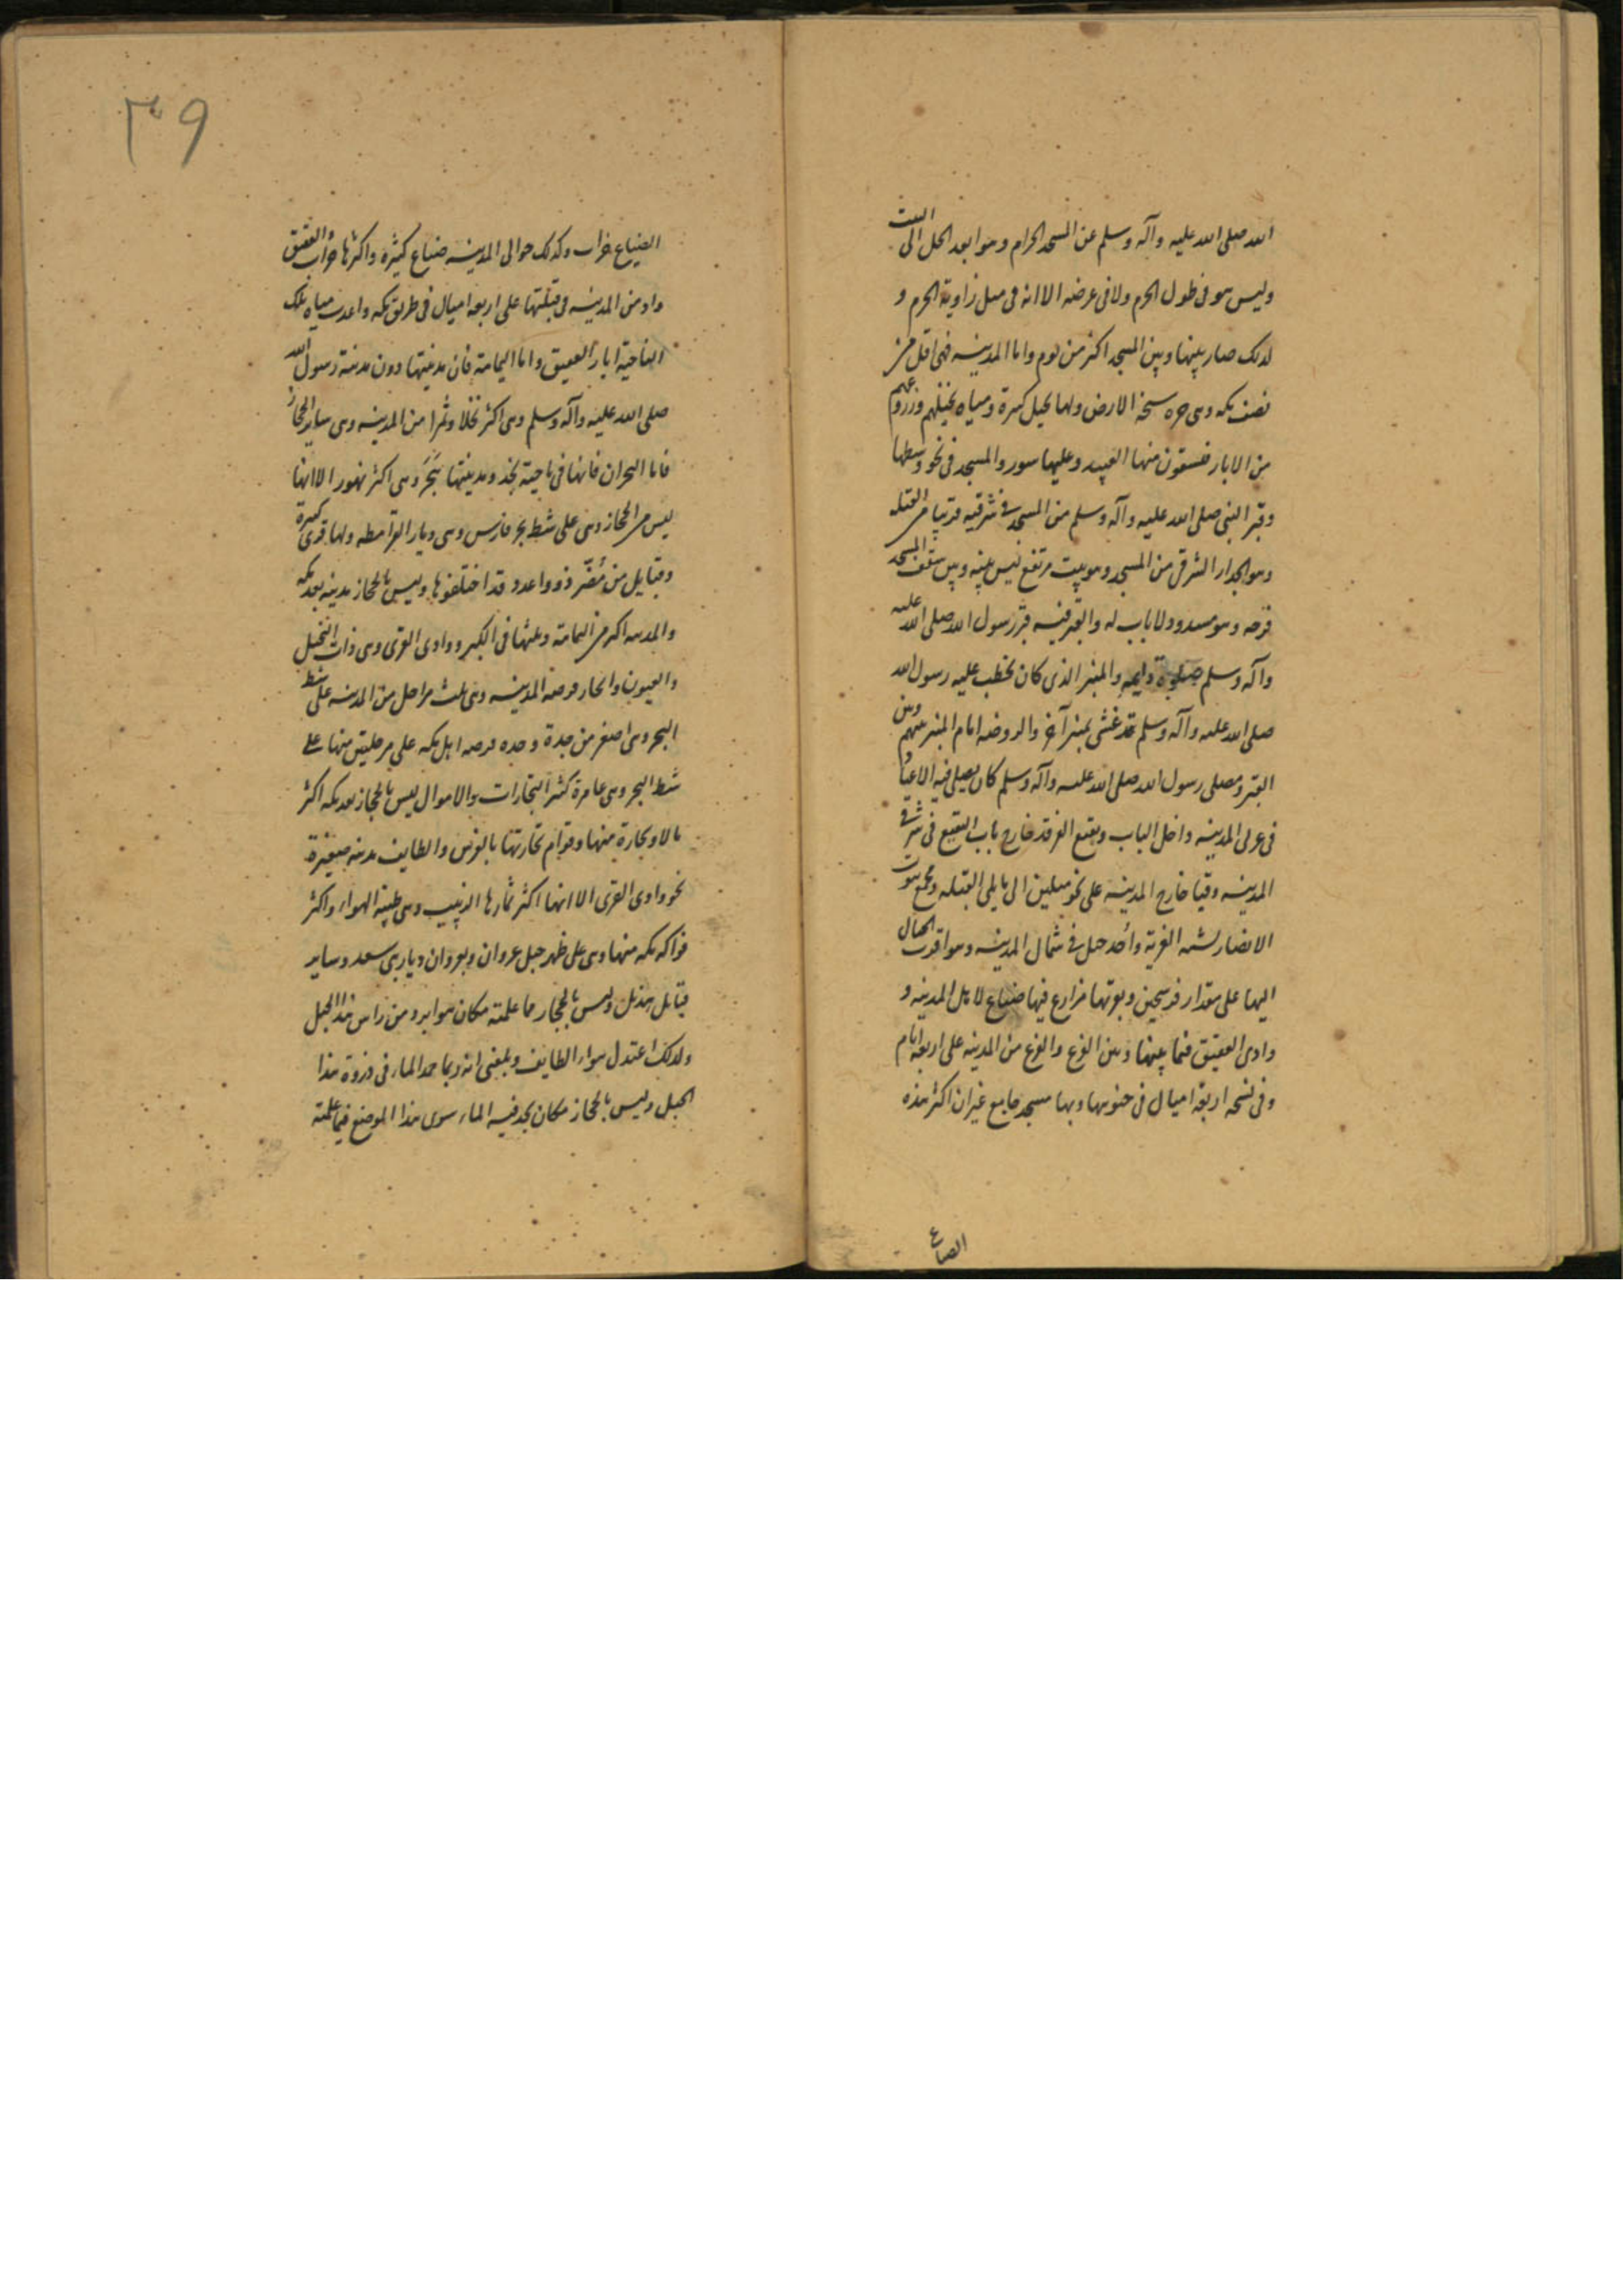 الله صلى الله عليه وآله وسلم عن المسجد الحرام وهو ابعد الحل الى البيت
وليس هو فى طول الحرم ولا فى عرضه الا انه فى ميل زاوية الحرم و
لذلك صار بينها وبين المسجد اكثر من يوم واما المدينه فهى اقل من
نصف مكه وهى حره سبخة الارض ولها نخيل كثيرة ومياه نخيلهم وزروعهم
من الابار يستقون منها العبيد وعليها سور والمسجد فى نحو وسطها
وقبر النبى صلى الله عليه وآله وسلم من المسجد فى شرقيه قريبا من القبله
وهو الجدار الشرقى من المسجد وهو بيت مرتفع ليس بينه وبين سقف المسجد
فرجه وهو مسدود لا باب له والقبر فيه قبر رسول الله صلى الله عليه
وآله وسلم صلوة دايمه والمنبر الذى كان يخطب عليه رسول الله
صلى الله عليه وآله وسلم قد غشى بمنبر آخر والروضه امام المنبر بينهم وبين
القبر ومصلى رسول الله صلى الله عليه وآله وسلم كان يصلى فيه الاعياد
فى غربى المدينه داخل الباب وبقيع الغرقد خارج باب البقيع فى شرقى
المدينه وقبا خارج المدينه على نحو ميلين الى ما يلى القبله ومجمع بيوت
الانصار يشبه القرية وأحد جبل فى شمال المدينه وهو اقرب الجبال
اليها على مقدار فرسخين وبقربها مزارع فيها ضياع لاهل المدينه و
وادى العقيق فيما بينها وبين الفرع والفرع من المدينه على اربعة ايام
وفى نسخه اربعة اميال فى جنوبها وبها مسجد جامع غيران اكثر هذه
الضياع
٣٩
الضياع خراب وكذلك حوالى المدينه ضياع كثيره واكثرها خراب والعقيق
واد من المدينه فى قبلتها على اربعة اميال فى طريق مكه واعذب مياه تلك
الناحية ابار العقيق واما اليمامة فان مدينتها دون مدينة رسول الله
صلى الله عليه وآله وسلم وهى اكثر نخلا وثمرا من المدينه وهى ساير الحجاز
فاما البحران فانها فى ناحية نجد ومدينتها هَجَر وهى اكثر تمور الا انها
ليس من الحجاز وهى على شط بحر فارس وهى ديار القرامطه ولها قرى كثيرة
وقبايل من مُضَر ذوو اعدد قد اختلفوها وليس بالحجاز مدينه بعد مكه
والمدينه اكبر من اليمامة ويليها فى الكبر ووادى القرى وهى ذات النخيل
والعيون والجار فرضه المدينه وهى ثلث مراحل من المدينه على شط
البحر وهى اصغر من جدة وجده فرضه اهل مكه على مرحلتين منها على
شط البحر وهى عامرة كثير التجارات والاموال ليس بالحجاز بعد مكه اكثر
مالا وتجارة منها وقوام تجارتها بالفرس والطايف مدينه صغيرة
نحو وادى القرى الا انها اكثر ثمارها الزبيب وهى طيبة الهواء واكثر
فواكه مكه منها وهى على ظهر جبل غزوان وبغزوان ديار بنى سعد وساير
قبايل هذيل وليس بالحجاز ما علمته مكان هو ابرد من راس هذا الجبل
ولذلك اعتدل هواء الطايف وبلغنى انه ربما جمد الماء فى ذروة هذا
الجبل وليس بالحجاز مكان يجمد فيه الماء سوى هذا الموضع فيما علمته